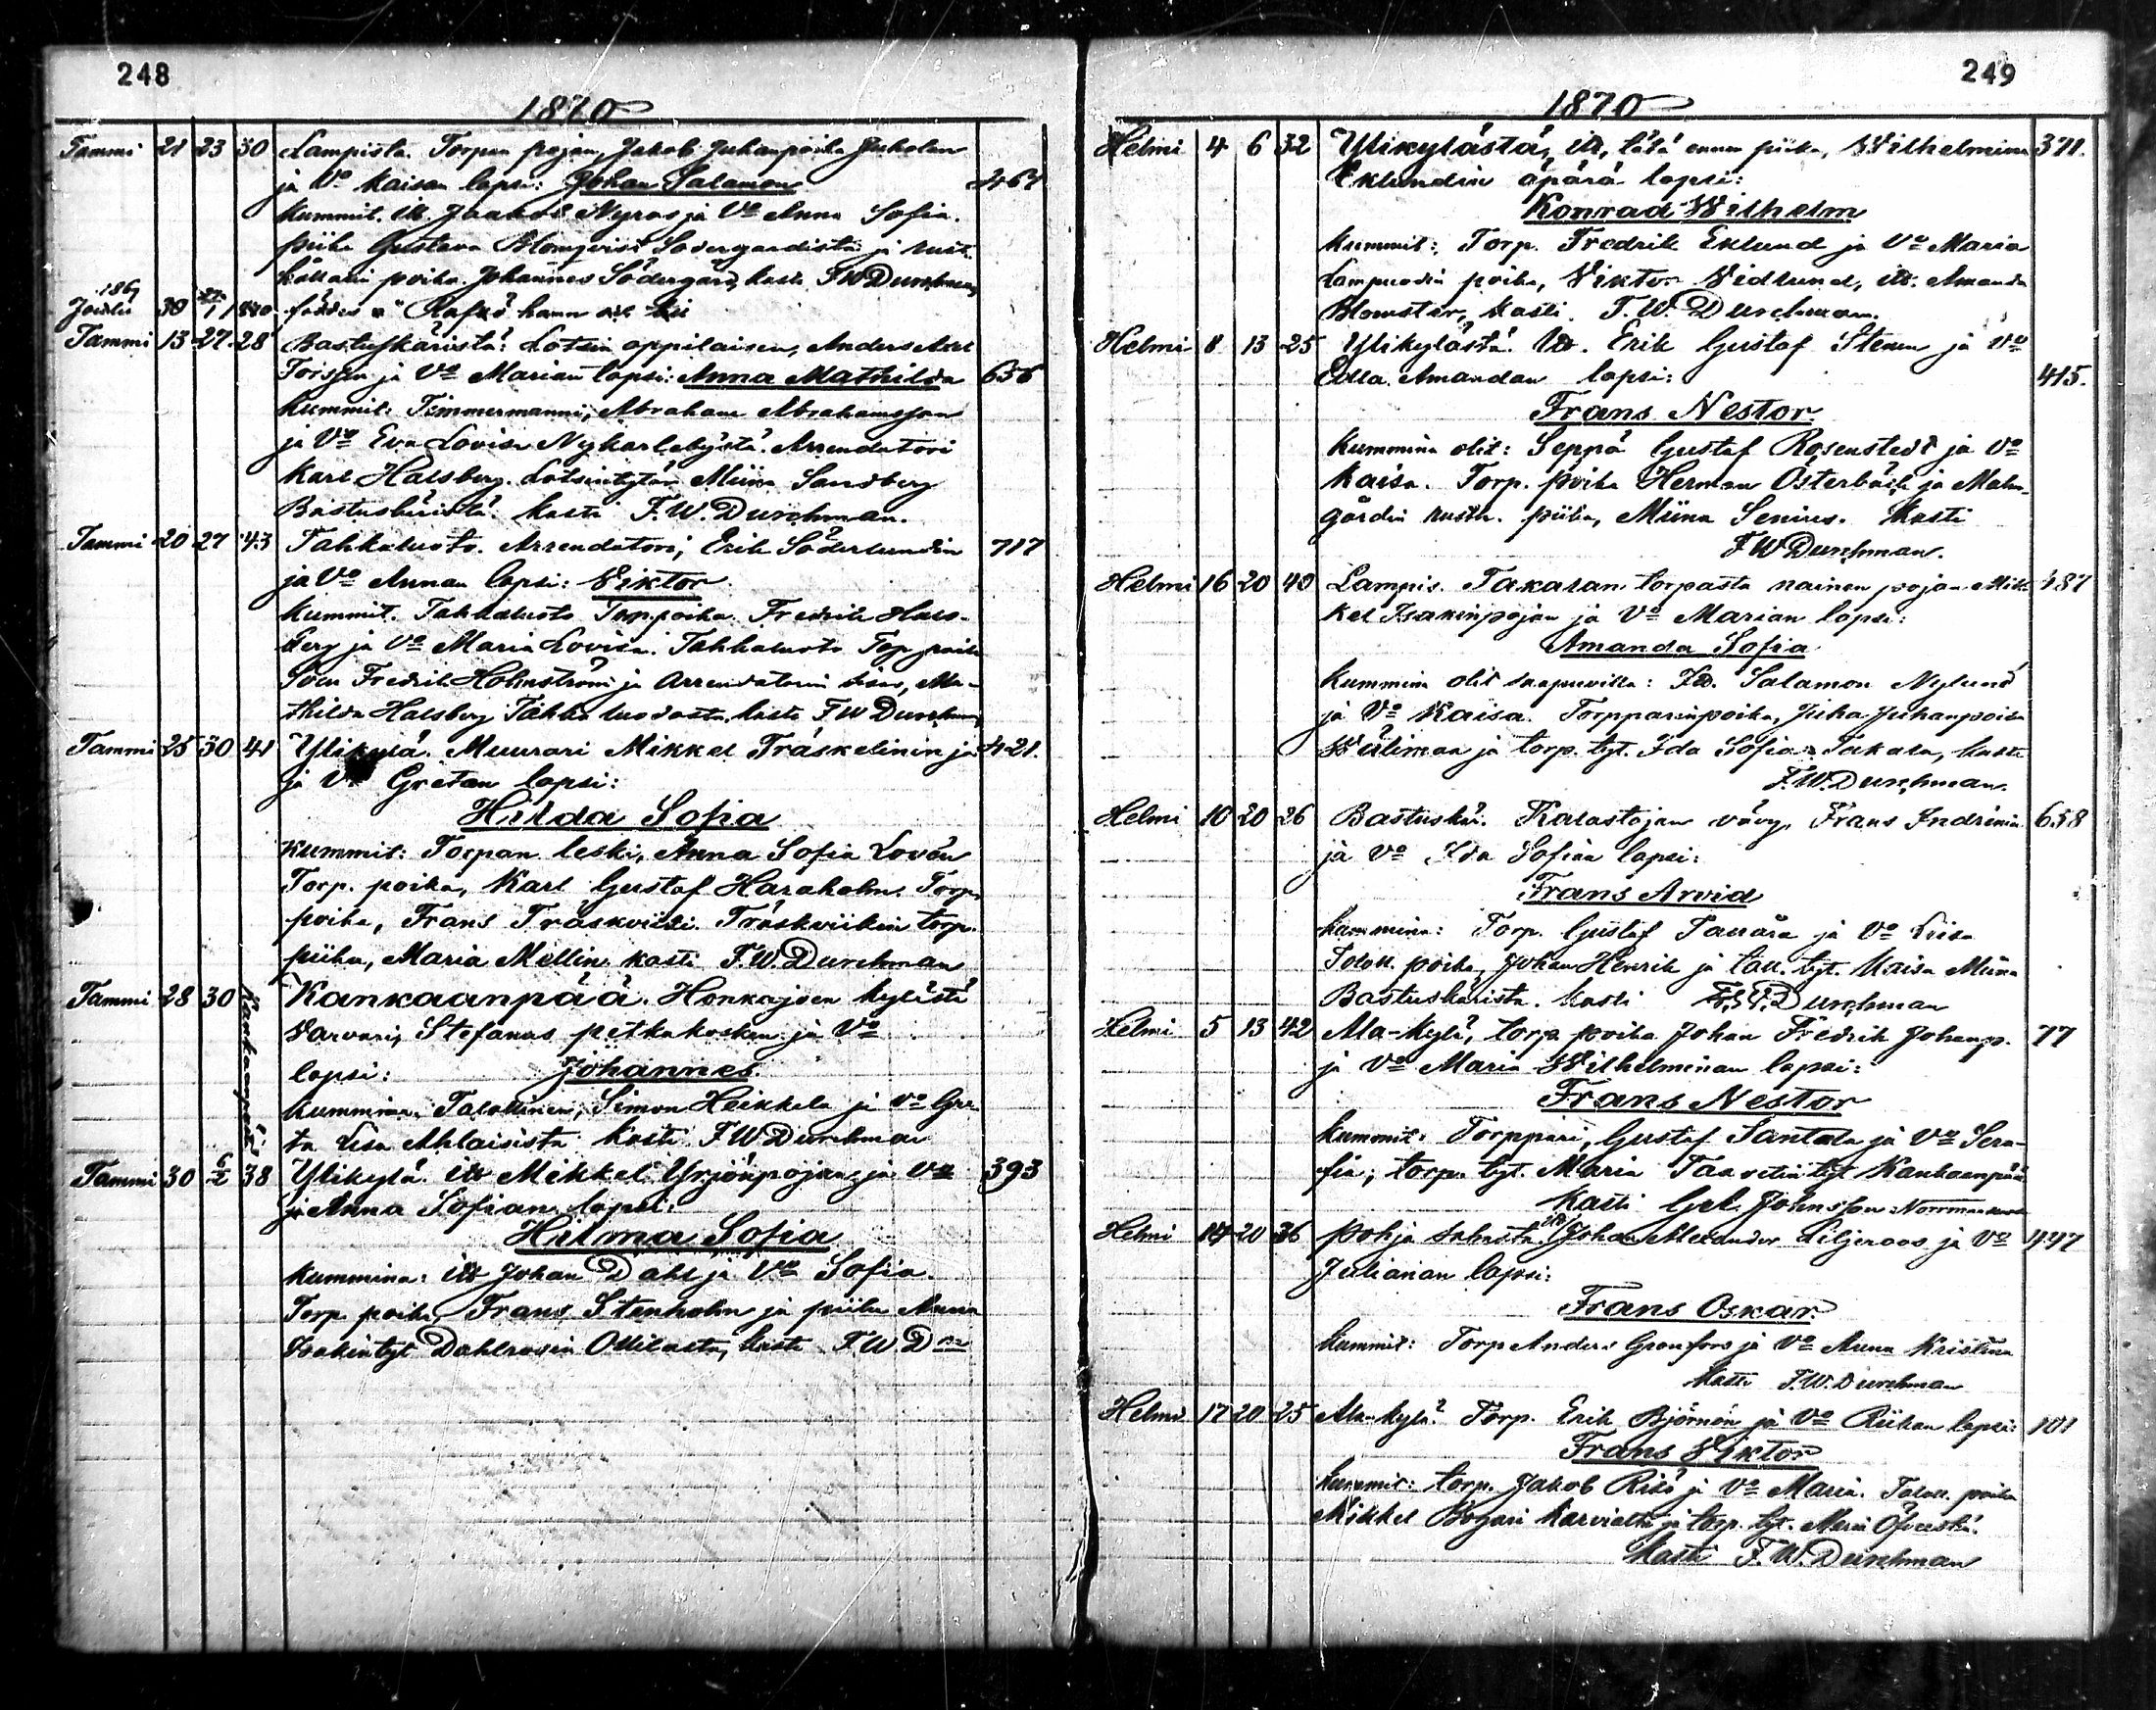 248
1870
Tammi 21 23 30 Lampista. Torpan pojan, Jakob Juhanpoika Juholan
ja Vo Kaisan lapsi: Johan Salamon 467
Kummit. itt. Jaakob Nyroos ja Vo Anna Sofia.
piika Gustava Blomqvist Södergårdista ja rust.
poika Johannes Södergård, kasti F W Durchman
1869
Joulu 30 1 födder Räfsö hamn
Tammi 13 27 28 Bastuskäristä: Lotsin oppilaisen, Anders Axel
ja Vo Marian lapsi: Anna Mathilda 656
Kummit: Timmermanni, Abraham Abrahamsson
ja Vo Eva Lovisa Nykarlebystä. Arrendatori
Karl Halsberg. Lotsintytär Miina Sandberg
Bastuskäristä. kasti F. W. Durchman.
Tammi 20 27 43 Tahkoluoto. Arrendatori, Erik Söderlundin 717
ja Vo Annan lapsi: Viktor
Kummit. Tahkoluoto Torp. poika. Fredrik Hals-
berg ja Vo Maria Lovisa. Tahkoluoto Torp poik
Sven Fredrik Holmström ja Arrendatorin sisar, Ma-
thilda Halsberg Tahkoluodosta, kasti F W Durchman
Tammi 25 30 41 Ylikylä. Muurari Mikkel Träskelinin ja 421.
ja Vo Gretan lapsi:
Hilda Sofia
Kummit: Torpan leski, Anna Sofia Lovén
Torp. poika, Karl Gustaf Haraholm. Torp.
poika, Frans Träskviiki. Träskviikin torp.
piika, Maria Mellin kasti F. W. Durchman
Tammi 28 30 Kankaanpää Kankaanpää. Honkajoen kylästä
Varvari, Stefanus petkakosken ja Vo
lapsi: Johannes
Kummina. Talollinen, Simon Heikkela ja Vo Gre
ta Lisa Ahlaisista Kasti F W Durchman
Tammi 30 6/2 38 Ylikylä. itt Mikkel Yrjönpojan, ja Vo 393
ja Anna Sofian lapsi:
Hilma Sofia
Kummina: itt Johan Dahl ja Vo Sofia.
Torp. poika, Frans Stenholm ja piika Anna
Isakintyt Dahlrosin Ollilasta, kasti F. W. D
249
1870
Helmi 4 6 32 Ylikylästä, itt, tätä ennen piika, Wilhelmina 371.
Eklundin äpärä lapsi:
Konrad Wilhelm
Kummit: Torp. Fredrik Eklund ja Vo Maria
poika, Viktor Vidlund, itt. Amanda
Blomster, kasti. F. W. Durchman.
Helmi 8 13 25 Ylikylästä. itt. Erik Gustaf Stenen ja Vo
Edla Amandan lapsi: 415.
Frans Nestor.
Kummina olit: Seppä Gustaf Rosenstedt ja Vo
Kaisa. Torp. poika Herman Österback ja Malm-
gårdin rusth. piika, Miina Senius. Kasti
F W Durchman.
Helmi 16 20 40 Lampis. Takalan torpasta nainen pojan Mik- 487
kel Isakinpojan ja Vo Marian lapsi:
Amanda Sofia
Kummina olit saapuvilla: Itt. Salamon Nylund
ja Vo Kaisa. Torpparinpoika, Juha Juhanpoika
Wäliman ja torp. tyt. Ida Sofia Takala, kasti
F. W. Durchman.
Helmi 10 20 26 Bastuskä. Kalastajan vävy, Frans Indrinin 658
ja Vo Ida Sofian lapsi:
Frans Arvid
Kummina: Torp. Gustaf ja Vo Liisa
Taloll. poika, Johan Henrik ja tall. tyt. Kaisa Miina
Bastuskärista. kasti F. W. Durchman
Helmi 5 13 42 Ala-kylä, torp. poika Johan Fredrik Johanp. 77
ja Vo Maria Wilhelminan lapsi:
Frans Nestor
Kummit: Torppari, Gustaf Santala ja Vo Sera-
fia; torp. tyt. Maria Taavetintyt Kankaanpää
Kasti Gel. Johnsson Norrmarkusta
Helmi 14 20 36 Pohja sahasta, itt Johan Alexander Liljeroos ja Vo 447
Julianan lapsi:
Frans Oskar.
Kummit: Torp Anders Granfors ja Vo Anna Kristina
Kasti F. W. Durchman
Helmi 17 20 25 Ala-kylä? Torp. Erik Björnön ja Vo Riikan lapsi: 101
Frans Viktor
Kummit: torp. Jakob Risö ja Vo Maria. Taloll. poika
Mikkel Bogari Karvialta ja torp. tyt. Maria
Kasti F. W. Durchman